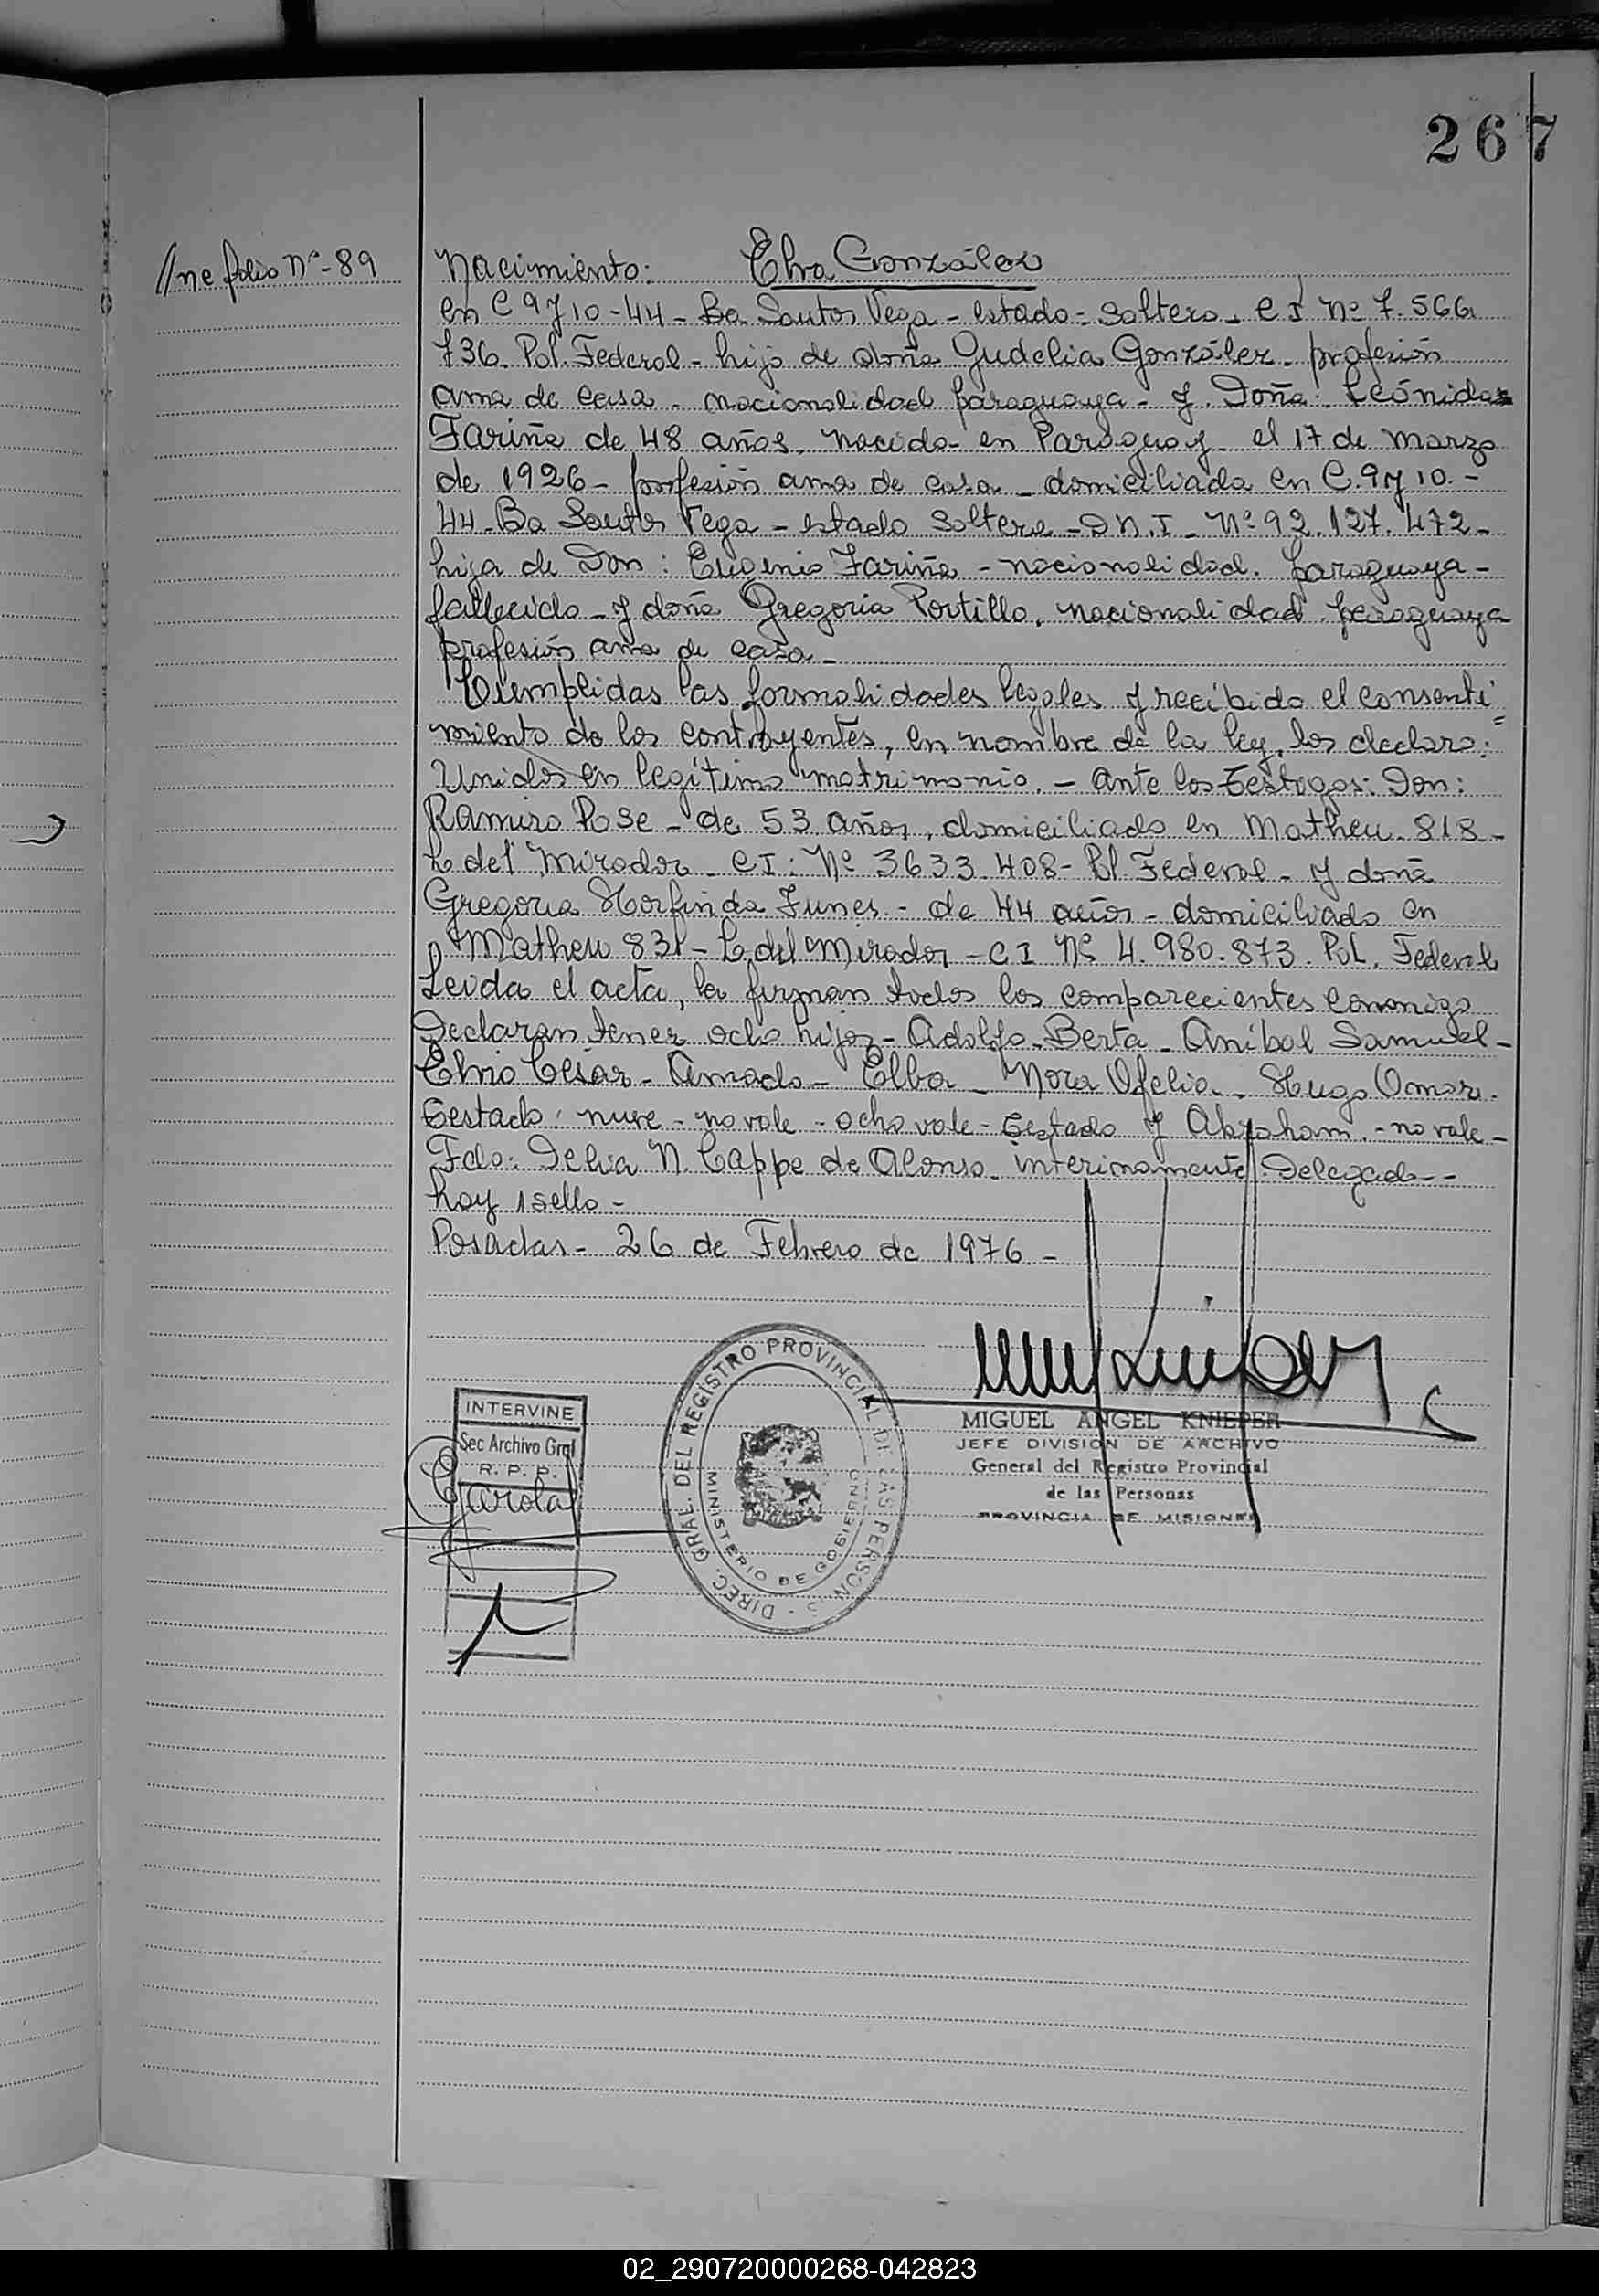 267
//ne folio Nº-89
Nacimiento: Elva González
en C 9 y 10-44- Bº Santos Vega - estado - soltero - C I Nº 7.566
736. Pol. Federal - hijo de doña Gudelia González. profesión
ama de casa - nacionalidad paraguaya - y. Doña: Leónidas
Fariña de 48 años, nacida en Paraguay el 17 de marzo
de 1926 - profesión ama de casa - domiciliada en C. 9 y 10.-
44-Bº Santos Vega - estado soltera - D N. I - Nº 92.127.472-
hija de Don: Eugenio Fariña - nacionalidad. paraguaya -
fallecido - y doña Gregoria Portillo, nacionalidad paraguaya
profesión ama de casa -
Cumplidas las formalidades legales y recibido el consenti
miento de los contrayentes, en nombre de la ley, los declaro:
Unidos en legítimo matrimonio. - ante los testigos: Don:
Ramiro Pose - de 53 años, domiciliado en Matheu - 818 -
L. del Mirador - CI: Nº 3633.408- Pl. Federal - y doña
Gregoria Funes - de 44 años - domiciliado en
Matheu 831 - L. del Mirador - C I Nº 4.980.873. Pol. Federal
Leida el acta, la firman todos los comparecientes conmigo
Declaran tener ocho hijos - Adolfo - Berta - Anibal Samuel -
Elvio César - Amado - Elba - Nora Ofelia - Hugo Omar.
Testado: nuve - no vale - ocho vale - Testado y Abraham. - no vale -
Fdo: Delia N. Cappe de Alonso - interinamente Delegada --
hay 1 sello -
Posadas - 26 de Febrero de 1976. -
INTERVINE
Sec Archivo Gral
R. P. P.
DIREC. GRAL. DEL REGISTRO PROVINCIAL DE LAS PERSONAS
MINISTERIO DE GOBIERNO
MIGUEL ANGEL KNIEPER
JEFE DIVISION DE ARCHIVO
General del Registro Provincial
de las Personas
PROVINCIA DE MISIONES
02_290720000268-042823